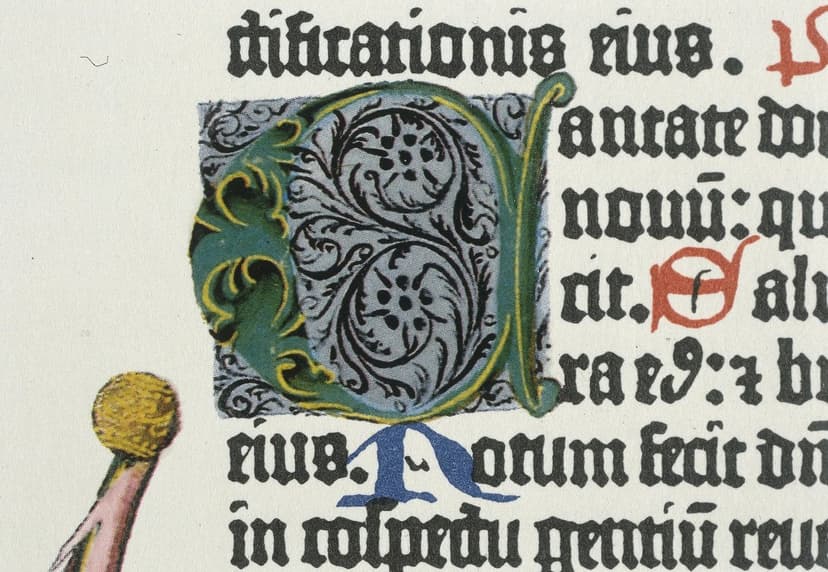 ctificationis eius.
Cantate do
nouū: qu
cit. Salu
ra eꝰ: ⁊ br
eius. Notum fecit dn̄
in coſpectu gentiū reue